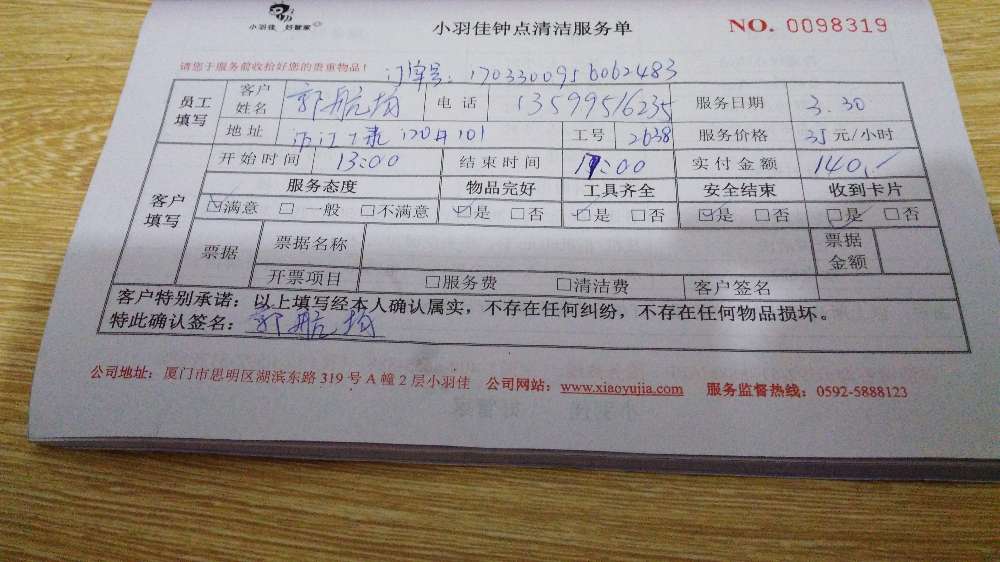 小羽佳 好管家
小羽佳钟点清洁服务单
NO. 0098319
请您于服务前收拾好您的贵重物品！
订单号：1703300956062483
员工填写 客户姓名 郭航 电话 13599516235 服务日期 3.30
地址 1201 101 工号 2638 服务价格 35元/小时
客户填写 开始时间 13:00 结束时间 17:00 实付金额 140.-
服务态度 物品完好 工具齐全 安全结束 收到卡片
☑满意 □一般 □不满意 ☑是 □否 ☑是 □否 ☑是 □否 ☑是 □否
票据 票据名称 票据金额
开票项目 □服务费 □清洁费 客户签名
客户特别承诺：以上填写经本人确认属实，不存在任何纠纷，不存在任何物品损坏。
特此确认签名：郭航
公司地址：厦门市思明区湖滨东路 319 号 A 幢 2 层小羽佳 公司网站：www.xiaoyujia.com 服务监督热线：0592-5888123